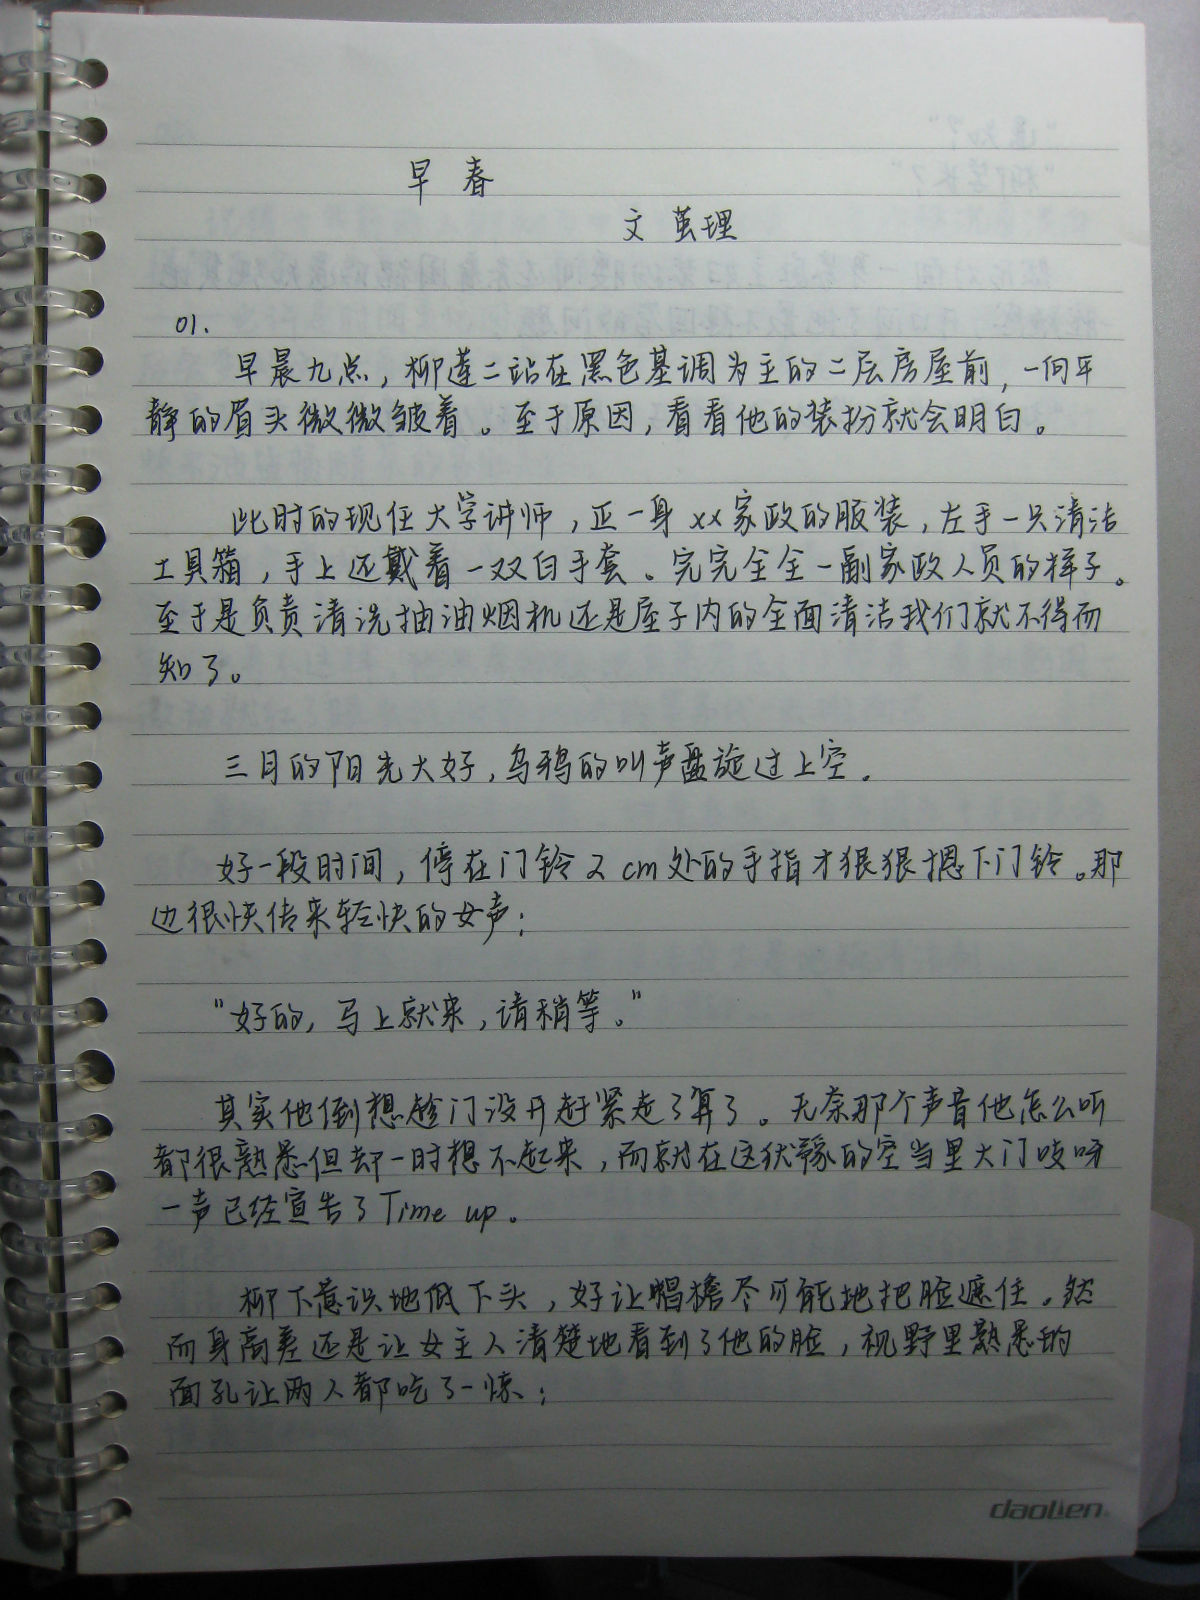 早春
文 茧理
01.
早晨九点，柳莲二站在黑色基调为主的二层房屋前，一向平
静的眉头微微皱着。至于原因，看看他的装扮就会明白。
此时的现任大学讲师，正一身xx家政的服装，左手一只清洁
工具箱，手上还戴着一双白手套。完完全全一副家政人员的样子。
至于是负责清洗抽油烟机还是屋子内的全面清洁我们就不得而
知了。
三月的阳光大好，乌鸦的叫声盘旋过上空。
好一段时间，停在门铃2cm处的手指才狠狠摁下门铃。那
边很快传来轻快的女声：
"好的，马上就来，请稍等。"
其实他倒想趁门没开赶紧走了算了。无奈那个声音他怎么听
都很熟悉但却一时想不起来，而就在这犹豫的空当里大门吱呀
一声已经宣告了Time up。
柳下意识地低下头，好让帽檐尽可能地把脸遮住。然
而身高差还是让女主人清楚地看到了他的脸，视野里熟悉的
面孔让两人都吃了一惊：
daolien